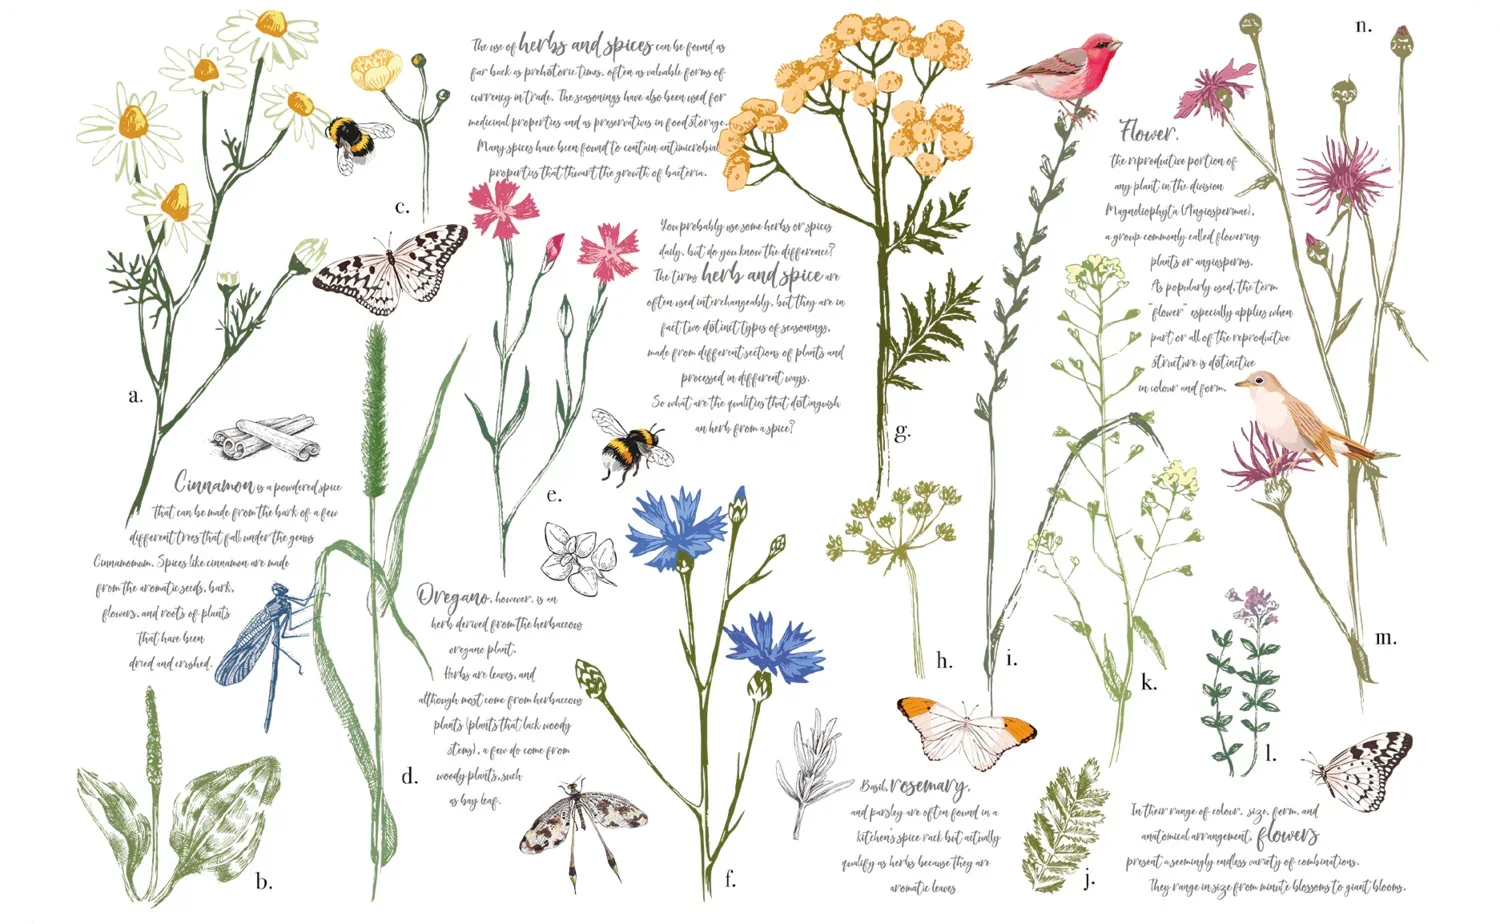 The use of herbs and spices can be found as
far back as prehistoric times, often as valuable forms of
currency in trade. The seasonings have also been used for
medicinal properties and as preservatives in food storage.
Many spices have been found to contain antimicrobial
properties that thwart the growth of bacteria.
c.
You probably use some herbs or spices
daily, but do you know the difference?
The terms herb and spice are
often used interchangeably, but they are in
fact two distinct types of seasonings,
made from different sections of plants and
processed in different ways.
So what are the qualities that distinguish
an herb from a spice?
n.
Flower,
the reproductive portion of
any plant in the division
Magnoliophyta (Angiospermae),
a group commonly called flowering
plants or angiosperms.
As popularly used, the term
"flower" especially applies when
part or all of the reproductive
structure is distinctive
in colour and form.
a.
g.
Cinnamon is a powdered spice
that can be made from the bark of a few
different trees that fall under the genus
Cinnamomum. Spices like cinnamon are made
from the aromatic seeds, bark,
flowers, and roots of plants
that have been
dried and crushed.
e.
Oregano, however, is an
herb derived from the herbaceous
oregano plant.
Herbs are leaves, and
although most come from herbaceous
plants (plants that lack woody
stems), a few do come from
woody plants, such
as bay leaf.
h.
i.
k.
m.
l.
d.
b.
f.
Basil, rosemary,
and parsley are often found in a
kitchen's spice rack but actually
qualify as herbs because they are
aromatic leaves
j.
In their range of colour, size, form, and
anatomical arrangement, flowers
present a seemingly endless variety of combinations.
They range in size from minute blossoms to giant blooms.